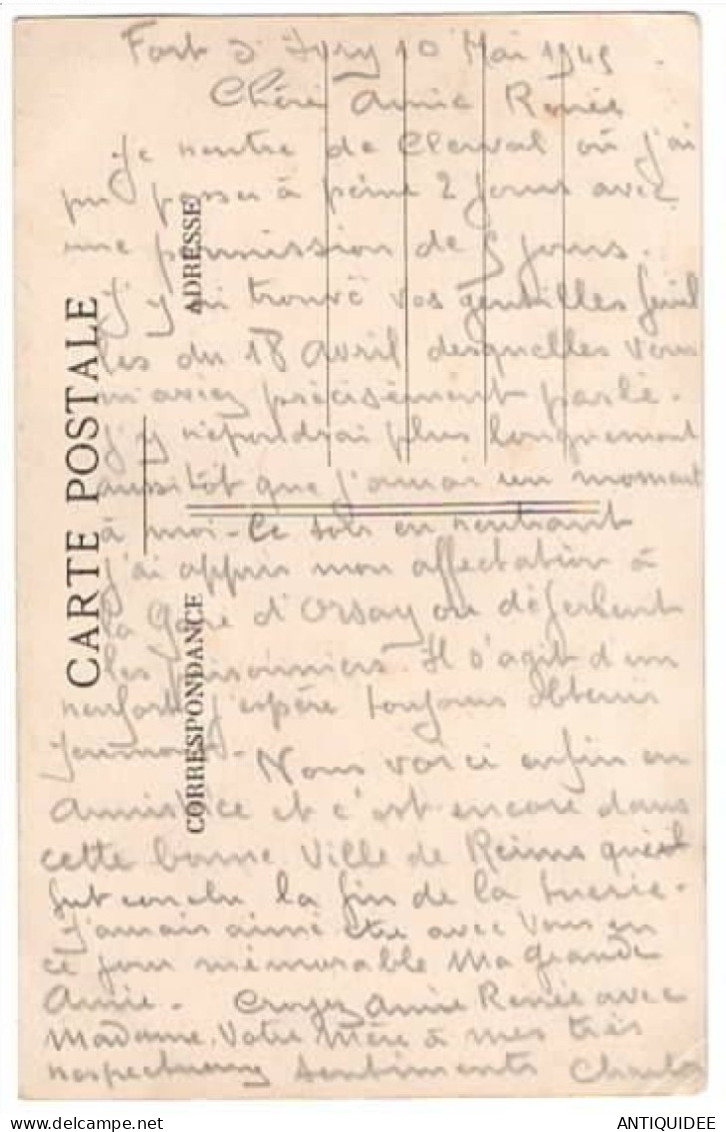 Fort d'Ivry 10 Mai 1945
Chère Amie Renée
Je rentre de Clerval où j'ai
pu passer à peine 2 jours avec
une permission de 5 jours.
J'y ai trouvé vos gentilles feuil
les du 18 Avril desquelles vous
m'aviez précisément parlé.
J'y répondrai plus longuement
aussitôt que j'aurai un moment
à moi - Ce soir en rentrant
j'ai appris mon affectation à
la Gare d'Orsay où déferlent
les prisonniers. Il s'agit d'un
renfort, j'espère toujours obtenir
Jeumont -
Nous voici enfin en
Armistice et c'est encore dans
cette bonne Ville de Reims qu'est
fut conclu la fin de la tuerie -
J'aurais aimé être avec vous en
ce jour mémorable Ma Grande
Amie - Croyez Amie Renée avec
Madame Votre Mère à mes très
respectueux sentiments Charles
CARTE POSTALE
ADRESSE
CORRESPONDANCE
ANTIQUIDEE